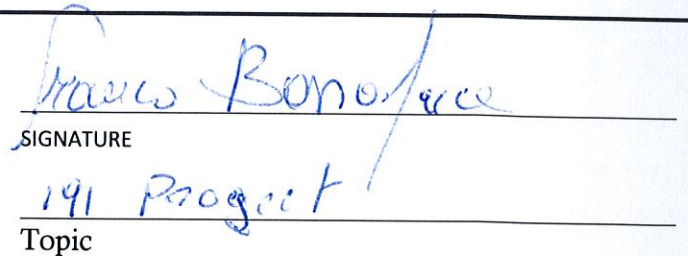 Franco Boniface
SIGNATURE
191 Progect
Topic